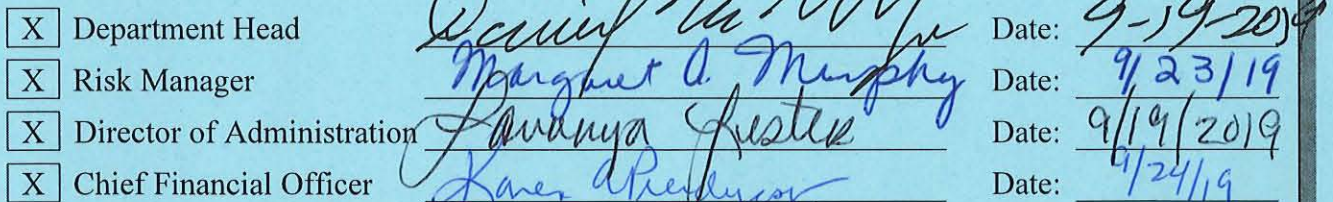 X Department Head Date: 9-19-2019
X Risk Manager Margaret A. Murphy Date: 9/23/19
X Director of Administration Lavanya Date: 9/19/2019
X Chief Financial Officer Karen Date: 9/24/19